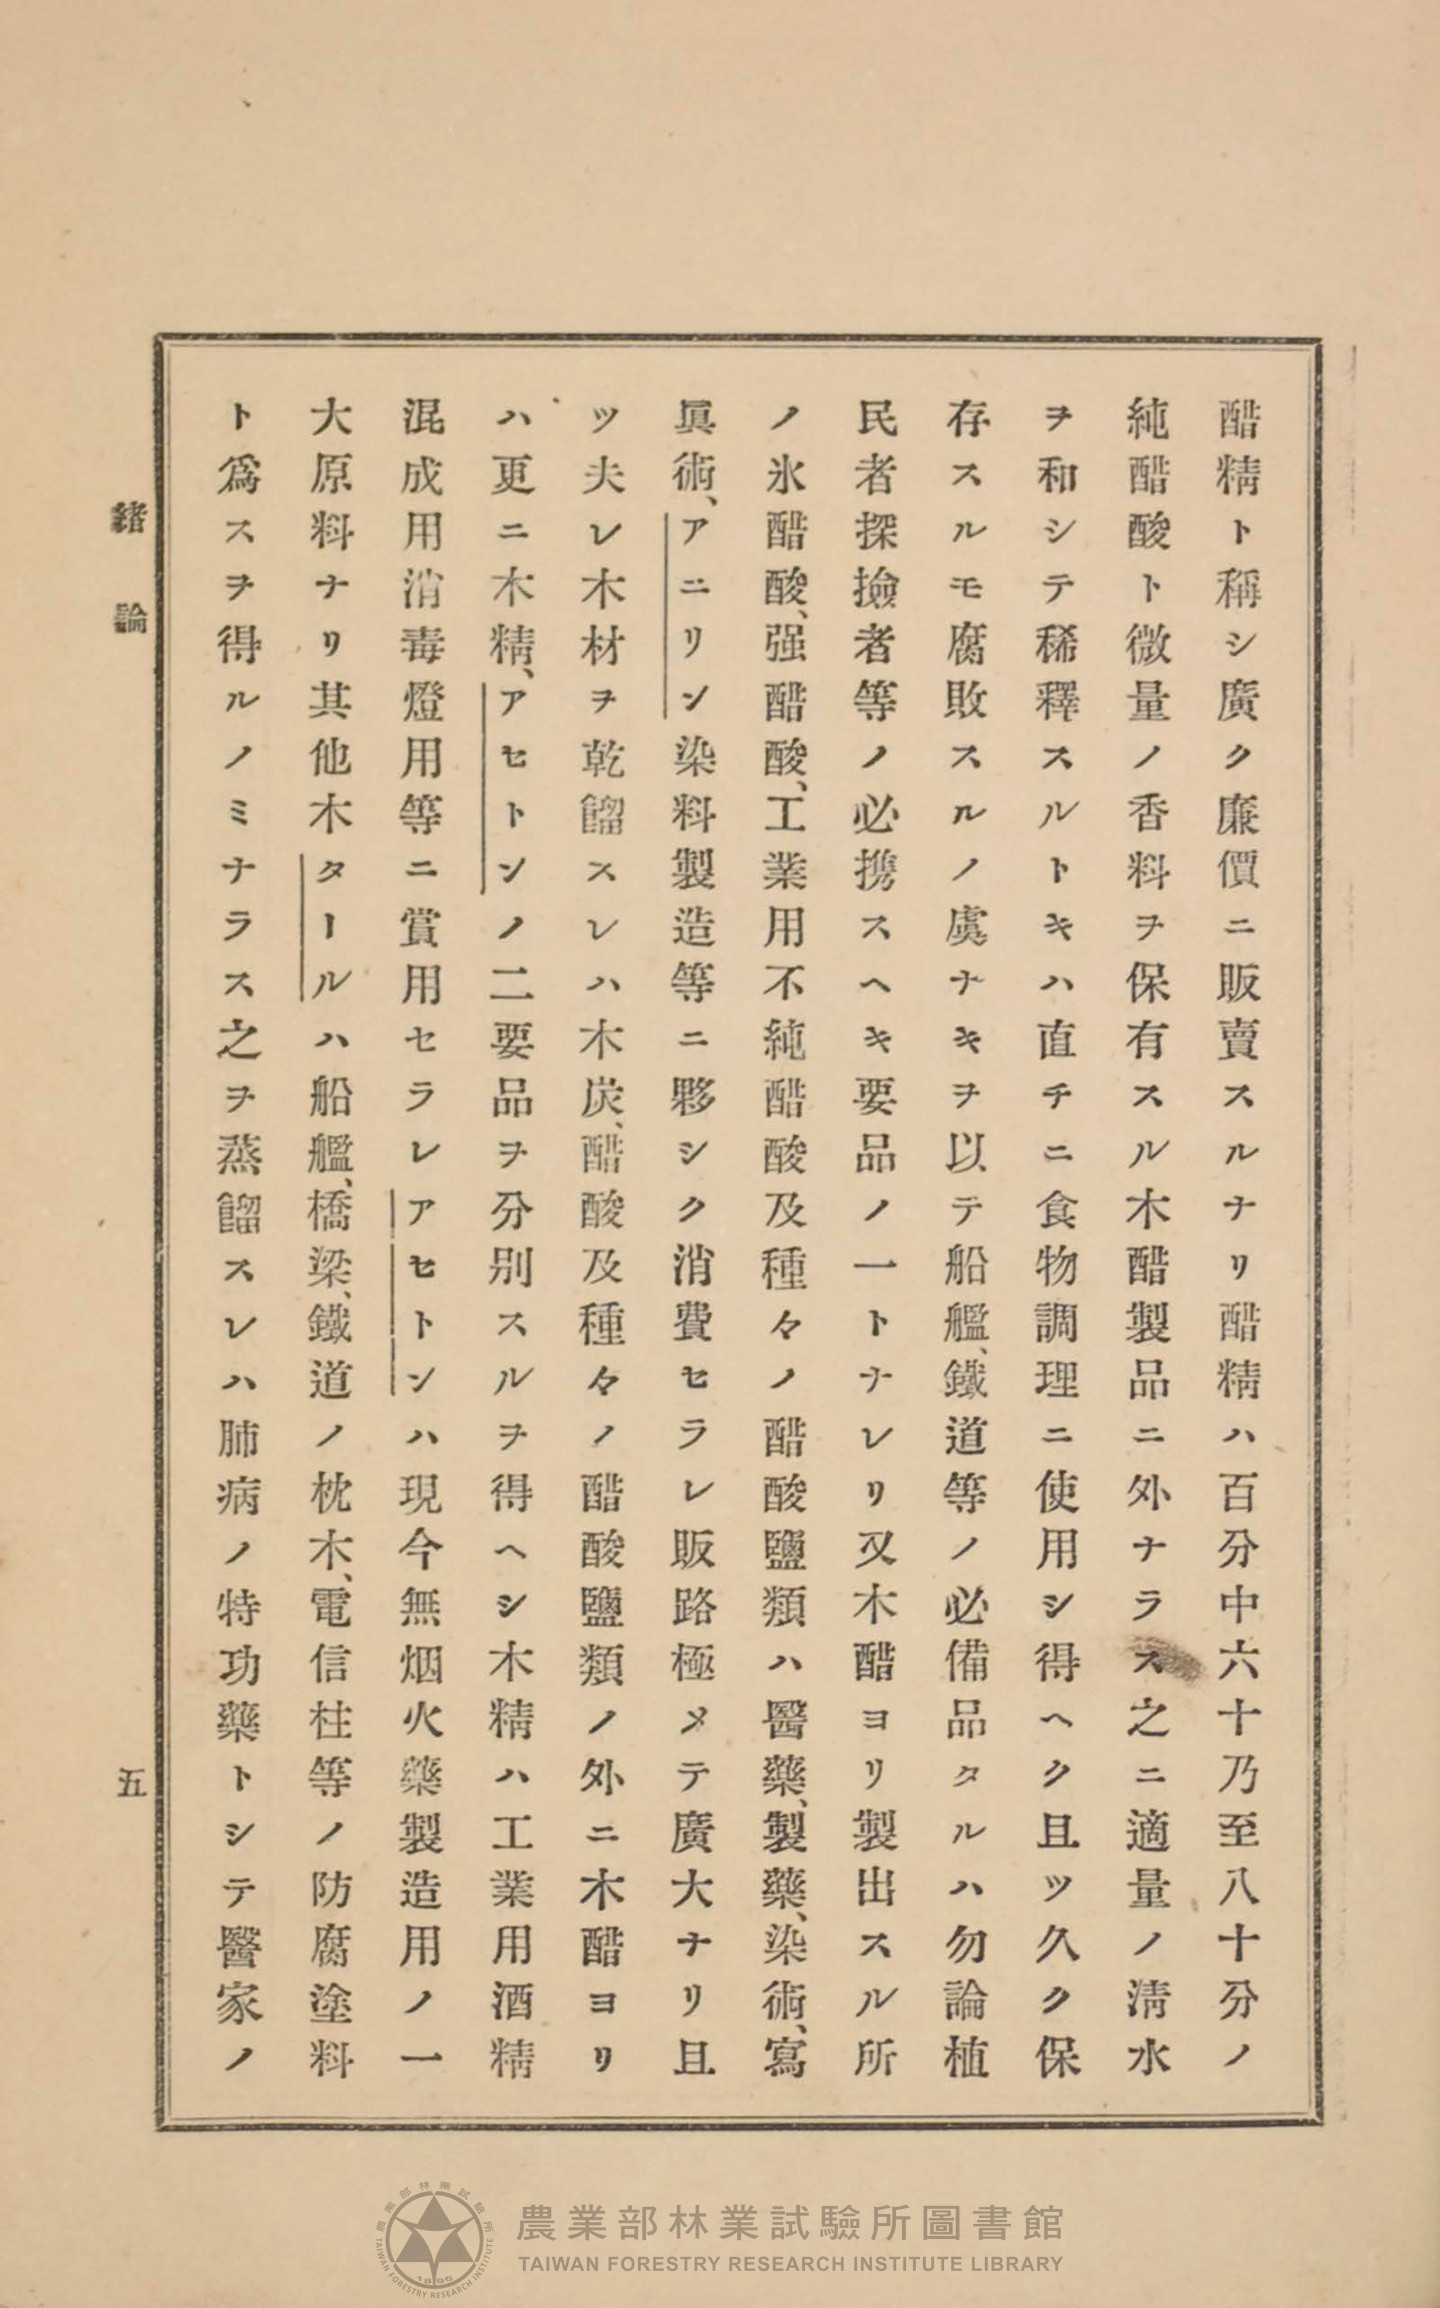 醋精ト稱シ廣ク廉價ニ販賣スルナリ醋精ハ百分中六十乃至八十分ノ
純醋酸ト微量ノ香料ヲ保有スル木醋製品ニ外ナラス之ニ適量ノ淸水
ヲ和シテ稀釋スルトキハ直チニ食物調理ニ使用シ得ヘク且ツ久ク保
存スルモ腐敗スルノ虞ナキヲ以テ船艦、鐵道等ノ必備品タルハ勿論植
民者探撿者等ノ必携スヘキ要品ノ一トナレリ又木醋ヨリ製出スル所
ノ氷醋酸、强醋酸、工業用不純醋酸及種々ノ醋酸鹽類ハ醫藥、製藥、染術、寫
眞術、アニリン染料製造等ニ夥シク消費セラレ販路極メテ廣大ナリ且
ツ夫レ木材ヲ乾餾スレハ木炭、醋酸及種々ノ醋酸鹽類ノ外ニ木醋ヨリ
ハ更ニ木精、アセトンノ二要品ヲ分別スルヲ得ヘシ木精ハ工業用酒精
混成用消毒燈用等ニ賞用セラレアセトンハ現今無烟火藥製造用ノ一
大原料ナリ其他木タールハ船艦、橋梁、鐵道ノ枕木、電信柱等ノ防腐塗料
ト爲スヲ得ルノミナラス之ヲ蒸餾スレハ肺病ノ特功藥トシテ醫家ノ
緖論
五
農業部林業試驗所圖書館
TAIWAN FORESTRY RESEARCH INSTITUTE LIBRARY
農業部林業試驗所
TAIWAN FORESTRY RESEARCH INSTITUTE
1896